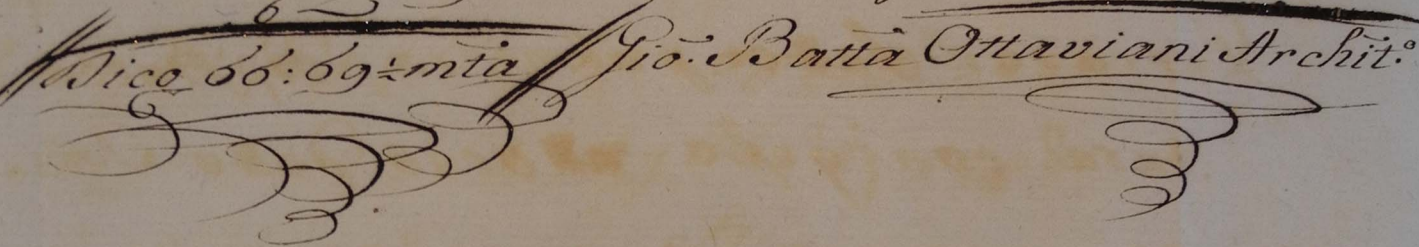 Dico 66: 69½ mtà Gio. Batta Ottaviani Archit.º